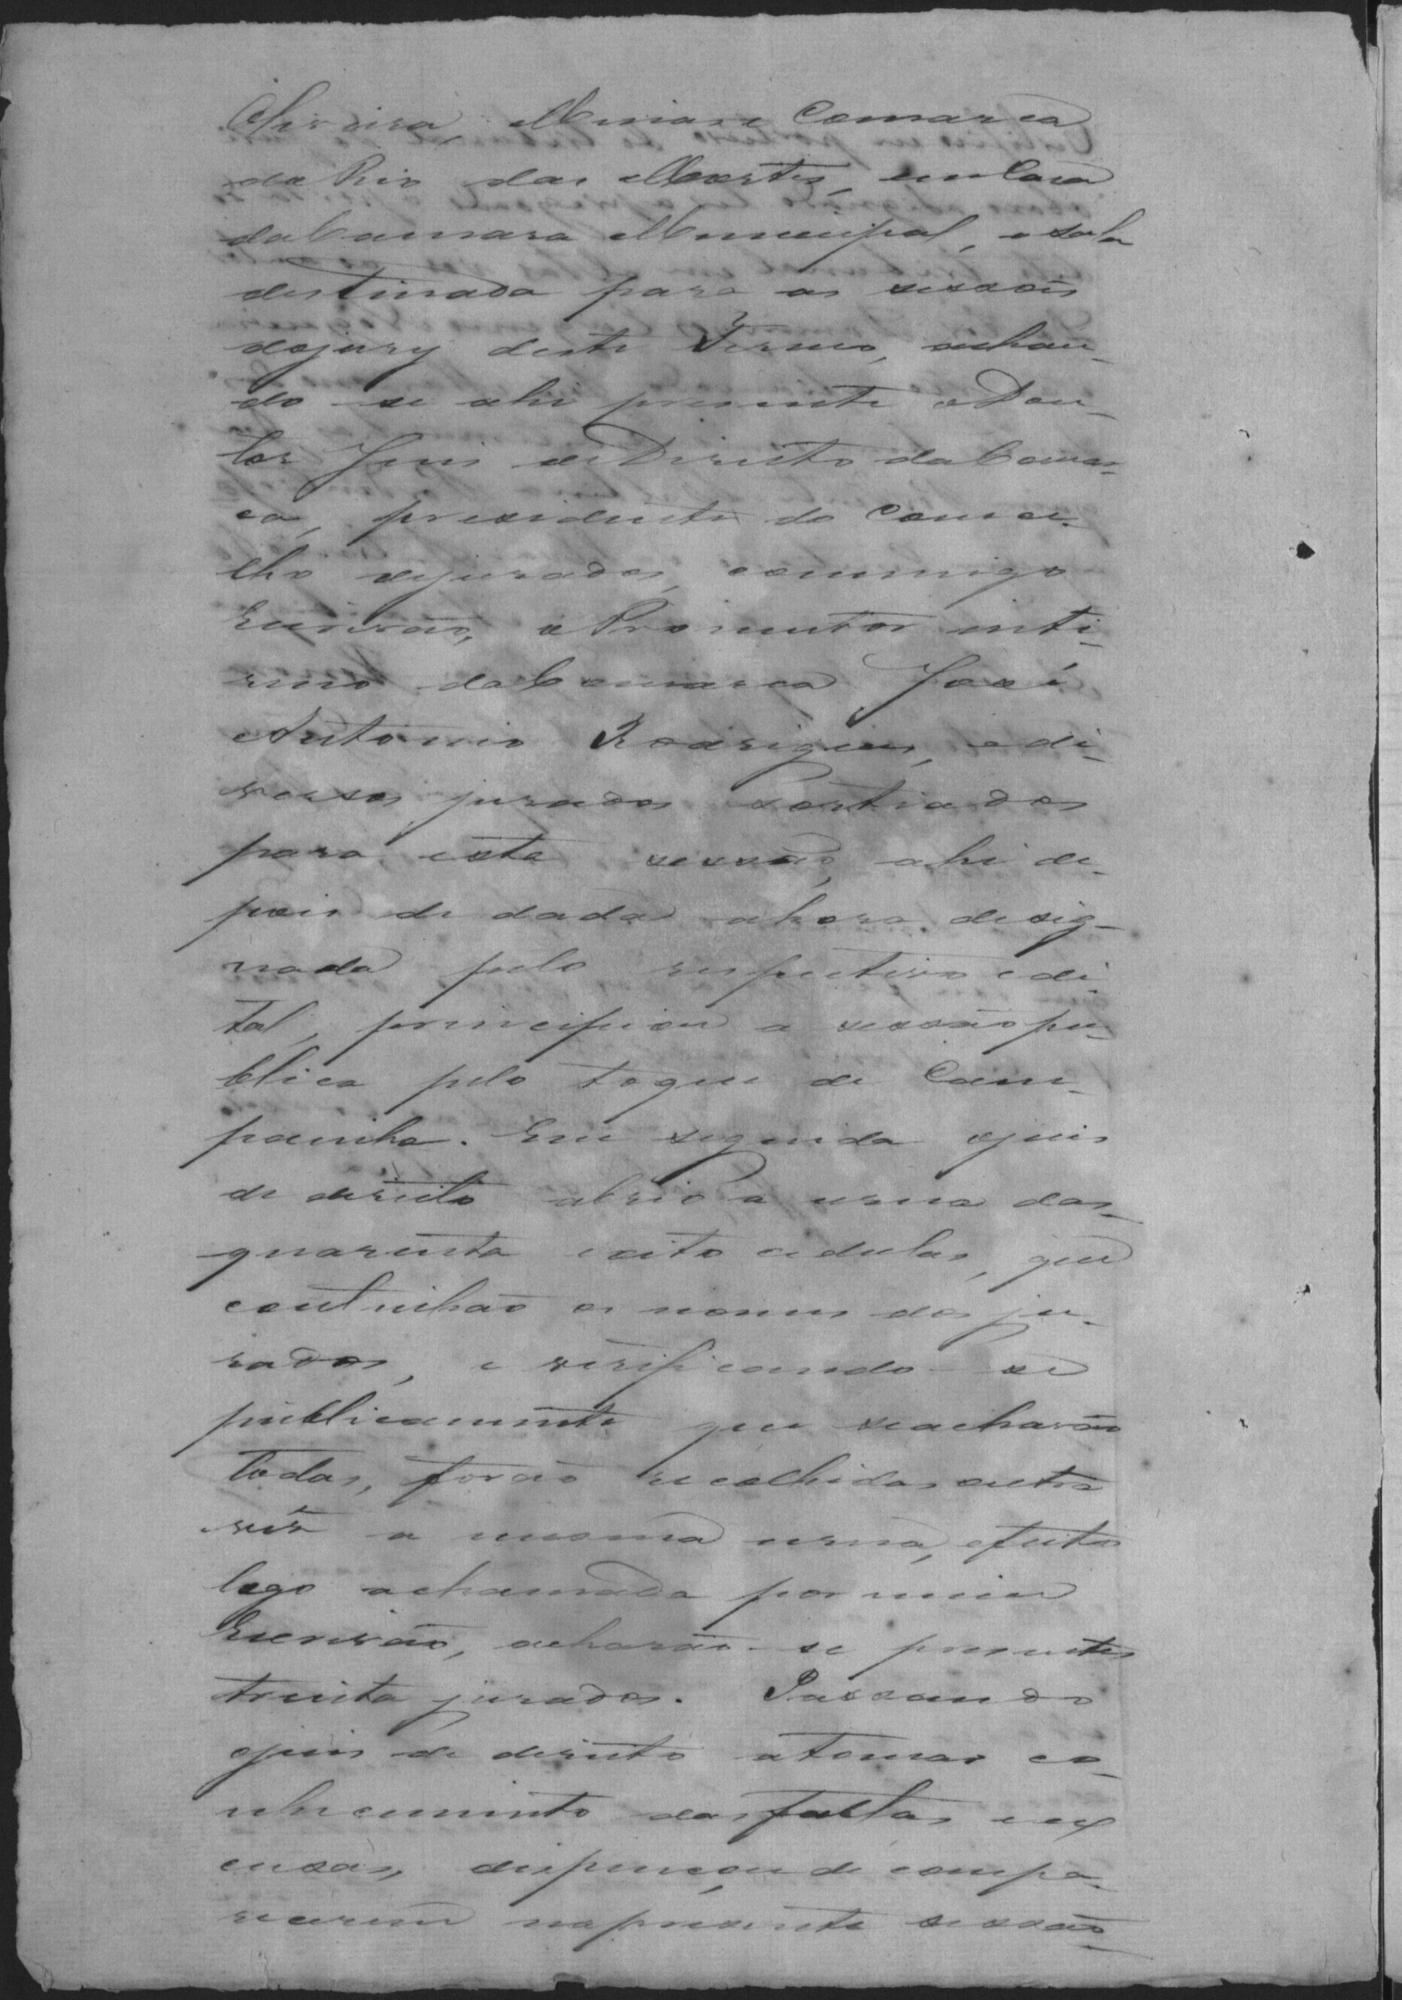 Oliveira, Minas e Comarca
do Rio das Mortes, em Casa
da Camara Municipal, e sala
destinada para as sessoẽs
do jury deste Termo, achan-
do-se ahi presente o Dou-
tor Juis de Direito da Comar-
ca, presidente do Conce-
lho de jurados, commigo
Escrivão, o Promotor inte-
rino da Comarca José
Antonio Rodrigues, e di-
versos jurados sortiados
para esta sessão, ahi de-
pois de dada a hora desig-
nada pelo respectivo edi-
tal, principiou a sessão pu-
blica pelo toque de Cam-
painha. Em seguida o juis
de direito abrio a urna das
quarenta e oito cedulas, que
continhão os nomes dos ju-
rados, e verificando-se
publicamente que se acharão
todas, forão recolhidas outra
vez a mesma urna, e feita
logo a chamada por mim
Escrivão, acharão-se presentes
trinta jurados. Passando
o juis de direito a tomar co-
nhecimento das faltas e ex
cusas, dispençou de compa-
recerem na presente sessão